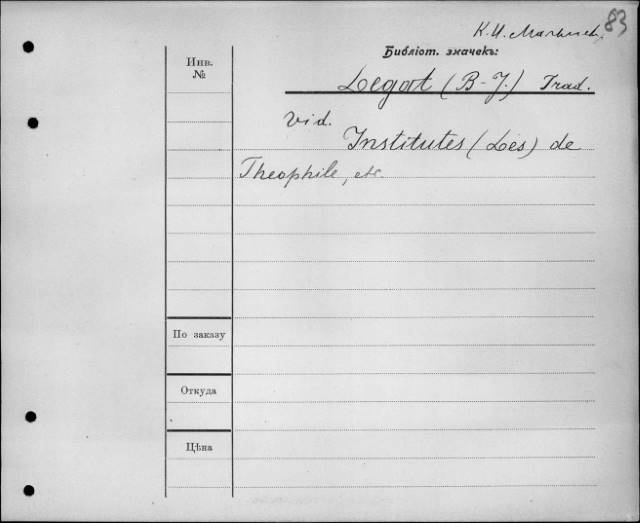 83
К. И. Малышев.
Библіот. значекъ:
Инв.
№
Legat (B-J.) Trad.
Vid.
Institutes (Les) de
Theophile, etc.
По заказу
Откуда
Цѣна